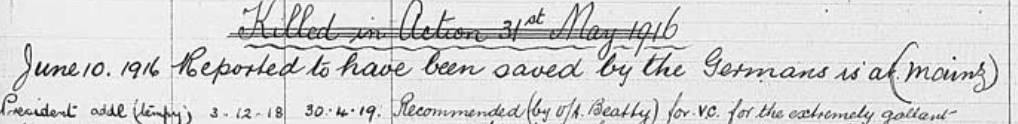 Killed in Action 31st May 1916
June 10. 1916 Reported to have been saved by the Germans is at (Mainz)
President addl (tempy) 3-12-18 30.4.19. Recommended (by V/A. Beatty) for V.C. for the extremely gallant